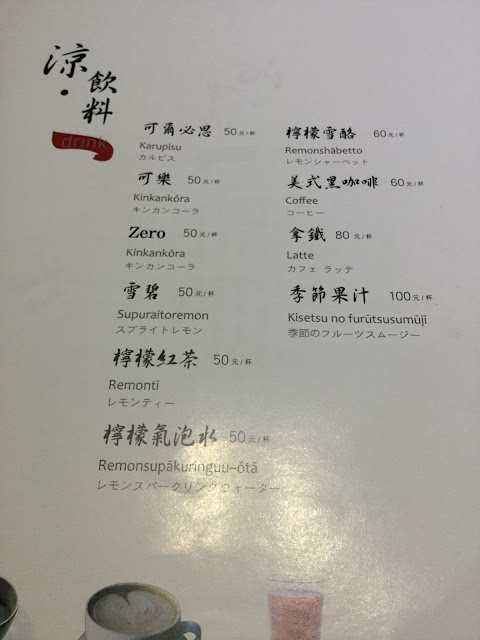 涼・飲料
drink
可爾必思 50元/杯
Karupisu
カルピス
可樂 50元/杯
Kinkankōra
キンカンコーラ
Zero 50元/杯
Kinkankōra
キンカンコーラ
雪碧 50元/杯
Supuraitoremon
スプライトレモン
檸檬紅茶 50元/杯
Remontī
レモンティー
檸檬氣泡水 50元/杯
Remonsupākuringuu~ōtā
レモンスパークリングウォーター
檸檬雪酪 60元/杯
Remonshābetto
レモンシャーベット
美式黑咖啡 60元/杯
Coffee
コーヒー
拿鐵 80元/杯
Latte
カフェ ラッテ
季節果汁 100元/杯
Kisetsu no furūtsusumūjī
季節のフルーツスムージー